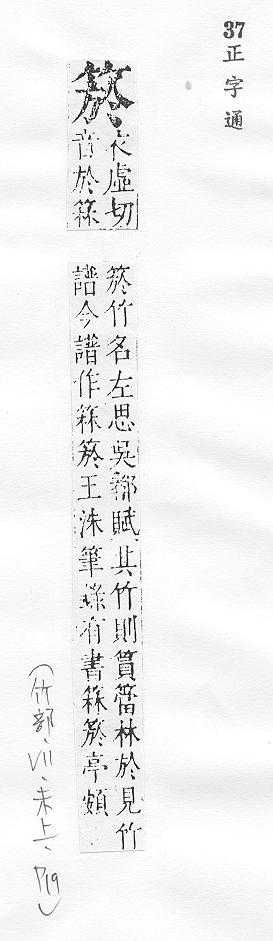 37
正字通
箊
衣虛切
音於箖
箊竹名左思吳都賦其竹則篔簹林於見竹
譜今譜作箖箊王洙筆錄有書箖箊亭頗
(竹部、VII、未上、P19)